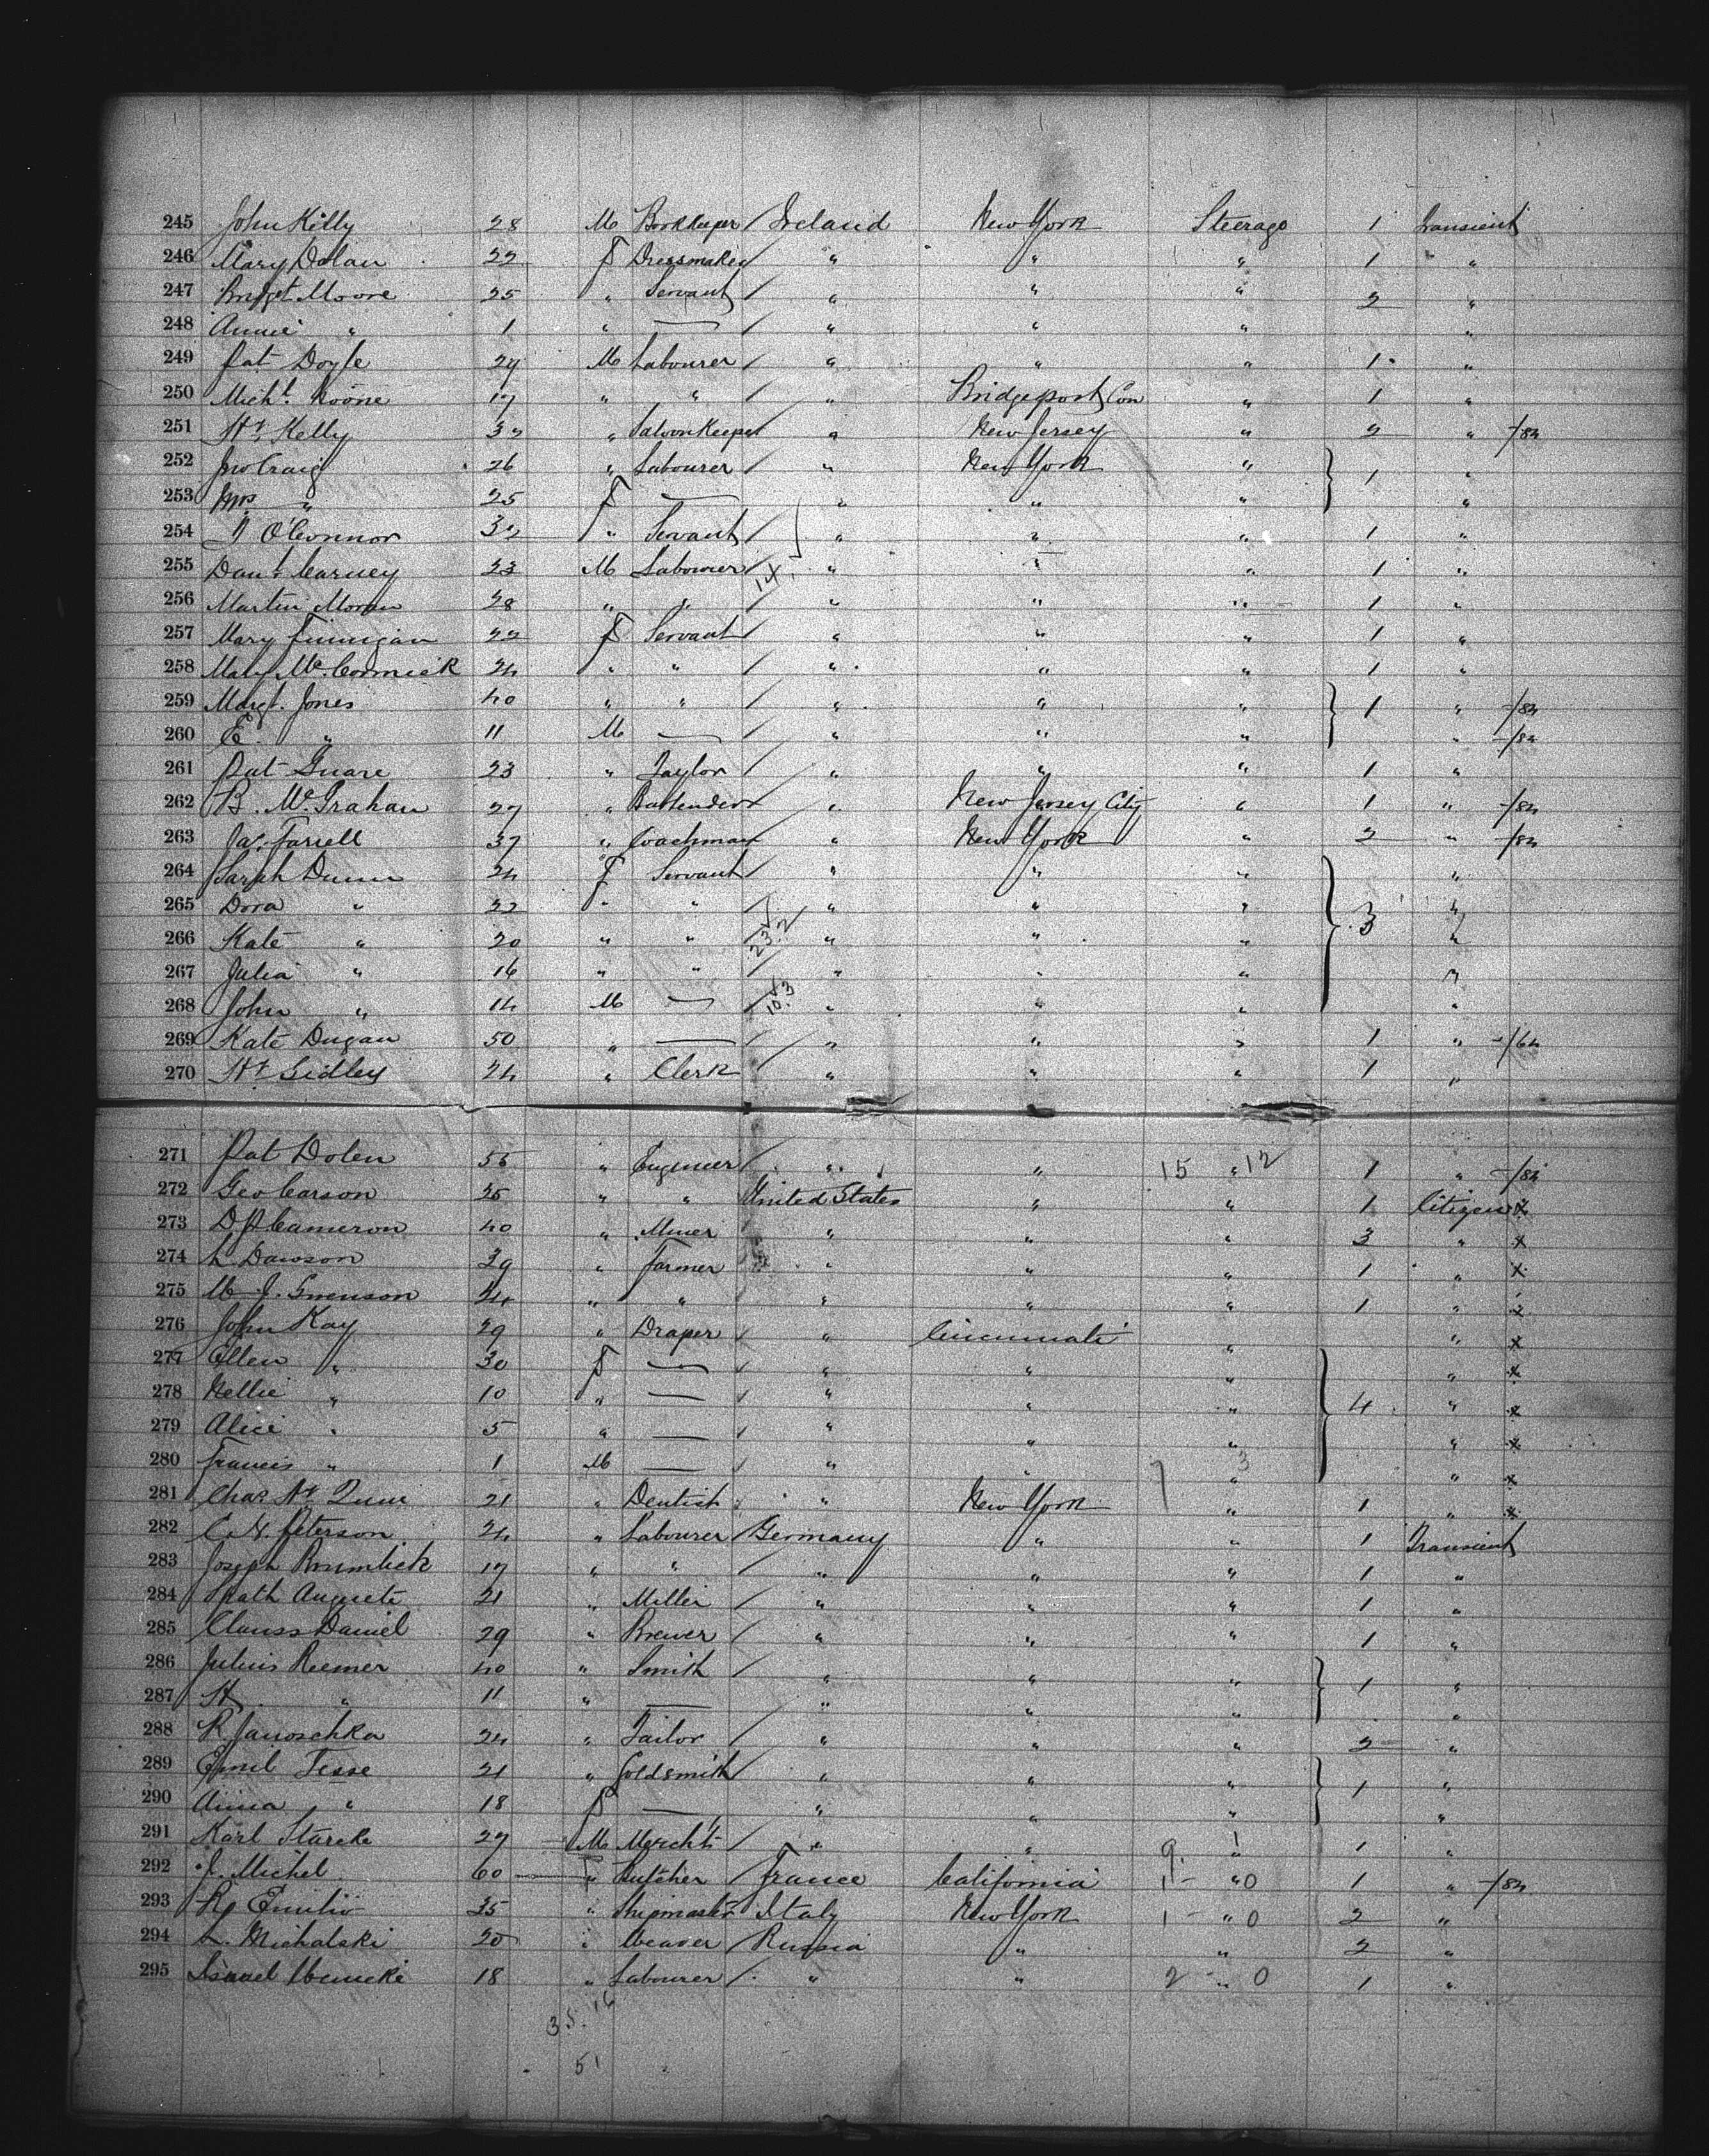 245 John Killy 28 M Bookkeeper / Ireland New York Steerage 1 Transient
246 Mary Dolan 22 F Dressmaker / " " " 1 "
247 Bridget Moore 25 " Servant / " " " 2 "
248 Annie " 1 " — / " " " "
249 Pat Doyle 29 M Labourer / " " " 1 "
250 Michl. Roone 17 " " / " Bridgeport Con " 1 "
251 Hy Kelly 32 " Saloonkeeper " New Jersey " 2 " /82
252 Jno Craig 26 " Labourer / " New York " 1 "
253 Mrs " 25 F — / " " " "
254 O'Connor 32 " Servant / " " " 1 "
255 Danl. Carney 23 M Labourer / 14. " " " 1 "
256 Martin Moran 28 " " " " " 1 "
257 Mary Finnigan 22 F Servant / " " " 1 "
258 Mary McCormick 24 " " / " " " 1 "
259 Margt. Jones 40 " " / " " " 1 " /82
260 E. " 11 M — / " " " " /82
261 Pat Guare 23 " Taylor / " " " 1 "
262 B. McGrahan 27 " Bartender " New Jersey City " 1 " /82
263 Jas. Farrell 37 " Coachman " New York " 2 " /82
264 Sarah Dunn 24 F Servant / " " " "
265 Dora " 22 " " / " " " 3 "
266 Kate " 20 " " / 23.2 " " " "
267 Julia " 16 " " / " " " "
268 John " 14 M — / 10.3 " " " "
269 Kate Dugan 50 " — / " " " 1 "
270 Hy Sidley 24 " Clerk / " " " 1 "
271 Pat Dolen 55 " Engineer / " " 15 " 12 1 " /82
272 Geo Carson 25 " " United States " " 1 Citizen x
273 D P Cameron 40 " Miner " " " 3 " x
274 L Dawson 39 " Farmer " " " 1 " x
275 M. J. Swenson 24 " " " " " 1 " x
276 John Kay 29 " Draper / " Cincinnati " " x
277 Ellen " 30 F — / " " " " x
278 Nellie " 10 " — / " " " 4 " x
279 Alice " 5 " — / " " " " x
280 Francis " 1 M — / " " 7 " 3 " x
281 Chas. Hy 21 " Dentist " New York " 1 " x
282 C. N. Peterson 24 " Labourer / Germany " " 1 Transient
283 Joseph 17 " " / " " " 1 "
284 Spath Auguste 21 " Miller / " " " 1 "
285 Clauss Daniel 29 " Brewer / " " " 1 "
286 Julius Reemer 40 " Smith / " " " 1 "
287 H " 11 " — " " " "
288 R Janoschka 24 " Tailor / " " " 2 "
289 Emil Tesse 21 " Goldsmith / " " " 1 "
290 Anna " 18 F — " " " "
291 Karl Starcke 27 M Mercht / " " 9. 1 1 "
292 J. Michel 60 " Butcher / France California 1 - " 0 1 " /82
293 Emilio 35 " Shipmaster Italy New York 1 - " 0 2 "
294 L. Michalski 20 " Weaver / Russia " " 2 "
295 18 " Labourer / " " 2 - " 0 1 "
35.16
51